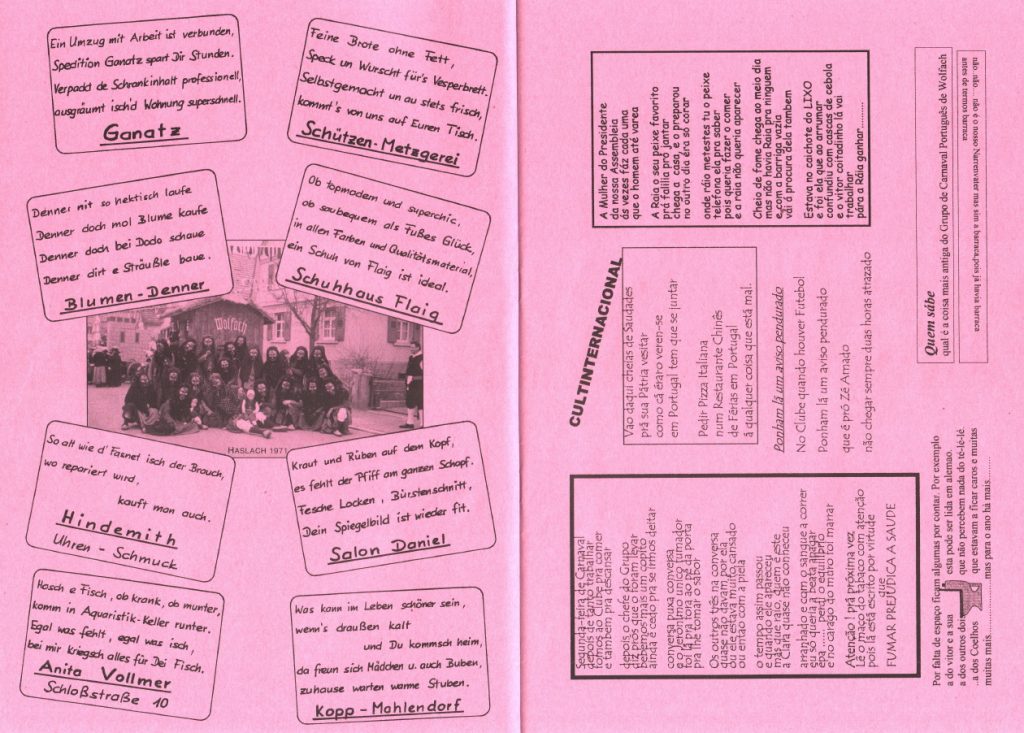 Ein Umzug mit Arbeit ist verbunden,
Spedition Ganatz spart Dir Stunden.
Verpackt de Schrankinhalt professionell,
ausgräumt isch'd Wohnung superschnell.
Ganatz
Feine Brote ohne Fett,
Speck un Wurscht für's Vesperbrett.
Selbstgemacht un au stets frisch,
kommt's von uns auf Euren Tisch.
Schützen-Metzgerei
Denner nit so hektisch laufe
Denner doch mol Blume kaufe
Denner doch bei Dodo schaue
Denner dirt e Sträußle baue.
Blumen-Denner
Ob topmodern und superchic,
ob saubequem als Fußes Glück,
in allen Farben und Qualitätsmaterial,
ein Schuh von Flaig ist ideal.
Schuhhaus Flaig
Wolfach
HASLACH 1971
So alt wie d' Fasnet isch der Brauch,
wo repariert wird,
kauft man auch.
Hindemith
Uhren - Schmuck
Kraut und Rüben auf dem Kopf,
es fehlt der Pfiff am ganzen Schopf.
Fesche Locken, Bürstenschnitt,
Dein Spiegelbild ist wieder fit.
Salon Daniel
Hosch e Fisch, ob krank, ob munter,
komm in Aquaristik-Keller runter.
Egal was fehlt, egal was isch,
bei mir kriegsch alles für Dei Fisch.
Anita Vollmer
Schloßstraße 10
Was kann im Leben schöner sein,
wenn's draußen kalt
und Du kommsch heim,
da freun sich Mädchen u. auch Buben,
zuhause warten warme Stuben.
Kopp - Mahlendorf
CULTINTERNACIONAL
A Mulher do Presidente
da nossa Assembleia
ás vezes fáz cada uma
que o homem até varea
A Raia o seu peixe favorito
prá falilia pró jantar
chega a casa, e o preparou
no outro dia éra só corar
onde ráio metestes tu o peixe
telefona ela pra saber
pois queria fazer o comer
e a raia não queria aparecer
Cheio de fome chega ao meio dia
mas não havia Raia pra ninguem
e,com a barriga vazia
vai á procura dela tambem
Estava no caichote do LIXO
e foi ela que ao arrumar
confundiu com cascas de cebola
e o vitor coitadinho lá vai
trabalhar
pára a Ráia ganhar...........
Vao daqui cheias de Saudades
prá sua Pátria vesitár
como cá éraro veren-se
em Portugal tem que se juntar
Pedir Pizza Italiana
num Restaurante Chinês
de Férias em Portugal
á qualquer coisa que está mal.
Ponham lá um aviso pendurado
No Clube quando houver Futebol
Ponham lá um aviso pendurado
que é pró Zé Amado
não chegar sempre duas horas atrazado
Segunda-feira de Carnaval
depois de muito trabalhar
fomos ao Clube pra comer
e tambem pra descansar
depois o chefe do Grupo
fiz prós que o foram levar
bebemos mais um copito
ainda é cedo pra se irmos deitar
conversa puxa conversa
e o Jeronimo unico fumador
foi lá pra fora ao pé da porta
pra lhe tomar o sabor
Os outros três na conversa
quase não davam por ela
ou ele estava muito cansado
ou então com a piela
o tempo assim passou
e quando ele apareceu
más que raio, quem é este
a Clara quase não conheceu
arranhado e com o sangue a correr
eu só queria a beata apagar
epá ... perdi o equilibrio
e no cargo do muro foi marrar
Atenção ! prá próxima vez
Lê o maço do tabaco com atenção
pois lá está escrito por virtude
que
FUMAR PREJUDICA A SAUDE
Quem sábe
qual é a coisa mais antiga do Grupo de Carnaval Português de Wolfach
não ,não... não é o nosso Narrenvater mas sim a barraca,pois já havia barraca
antes de termos barraca
Por falta de espaço ficam algumas por contar. Por exemplo
a do vitor e a sua esta pode ser lida em alemao.
a dos outros dois que não percebem nada do té-lé-lé.
..a dos Coelhos que estavam a ficar caros e muitas
muitas mais..................mas para o ano há mais.........